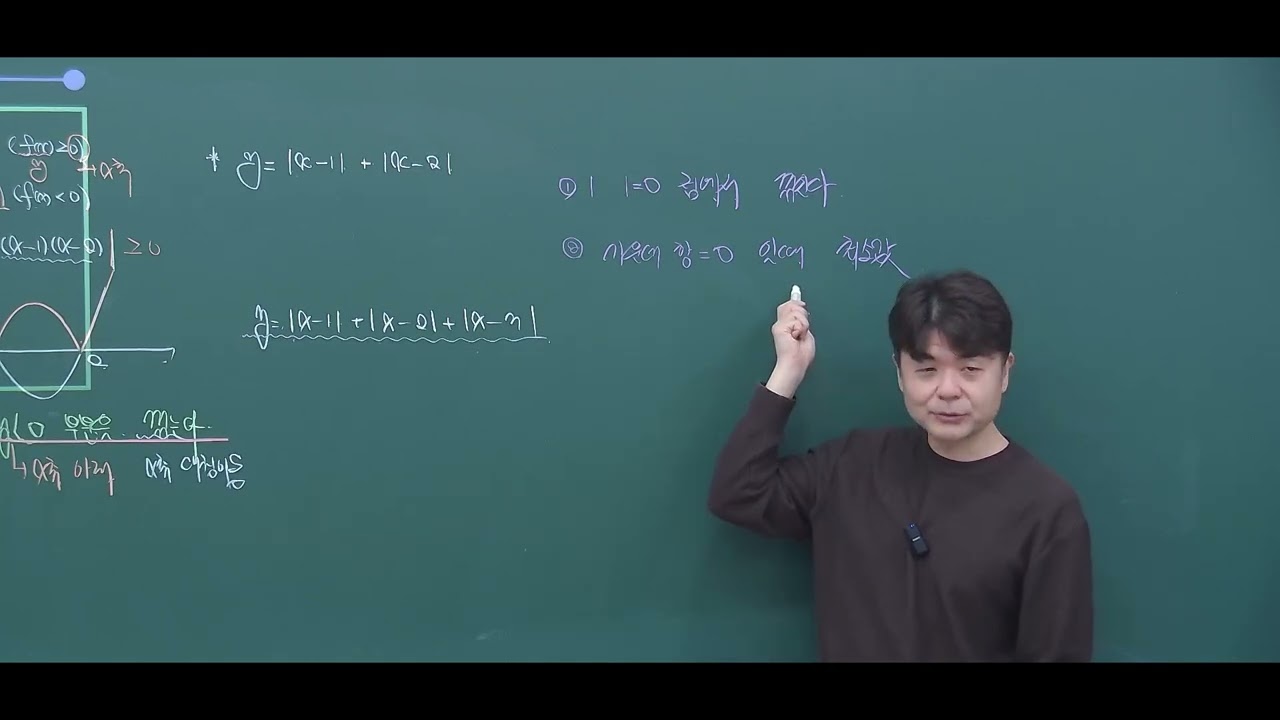 (f(x) ≥ 0)
y → x축
(f(x) < 0)
(x-1)(x-2)| ≥ 0
2
* y = |x-1| + |x-2|
y = |x-1| + |x-2| + |x-3|
① | |=0 점에서 꺾인다
② 가운데 항=0 일때 최솟값
<0
↳ x축 아래 x축 대칭이동